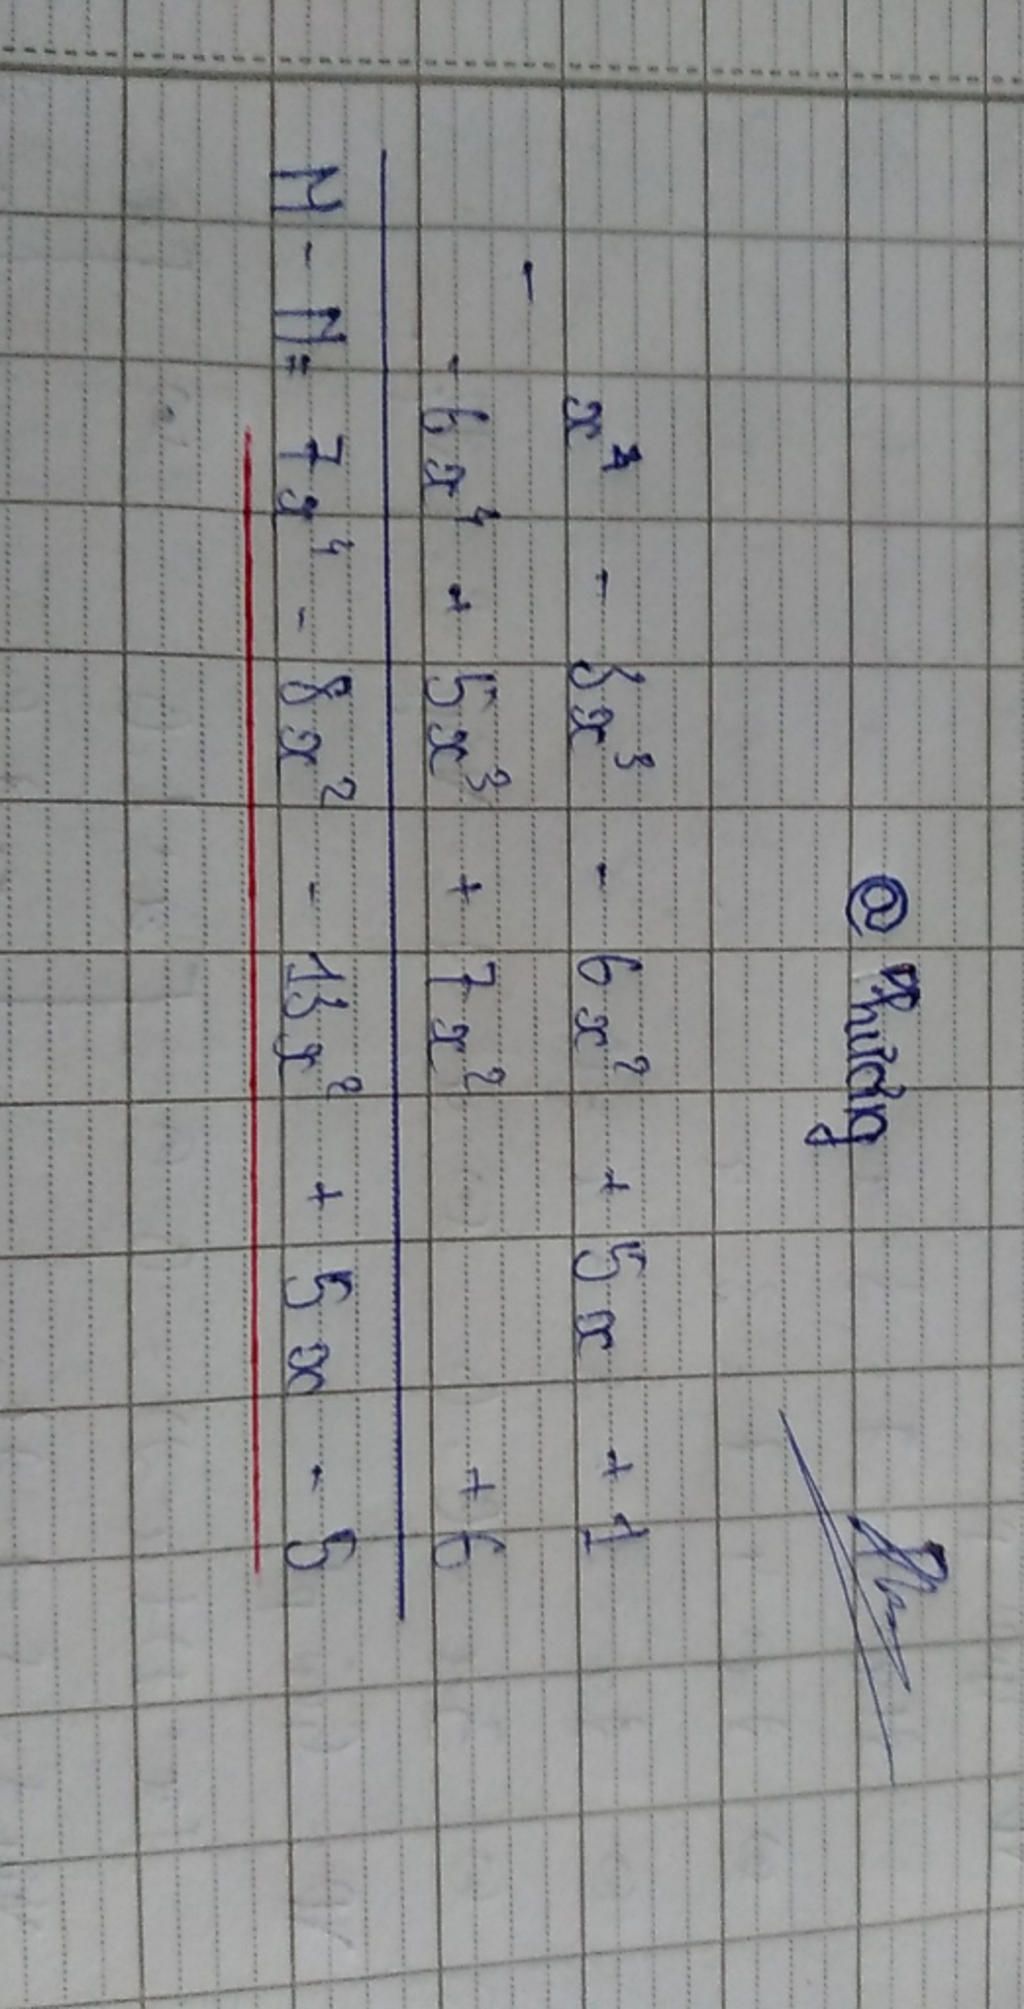 @ Phương
x⁴ - 3x³ - 6x² + 5x + 1
-
- 6x⁴ + 5x³ + 7x² + 6
M - N = 7x⁴ - 8x² - 13x² + 5x - 5